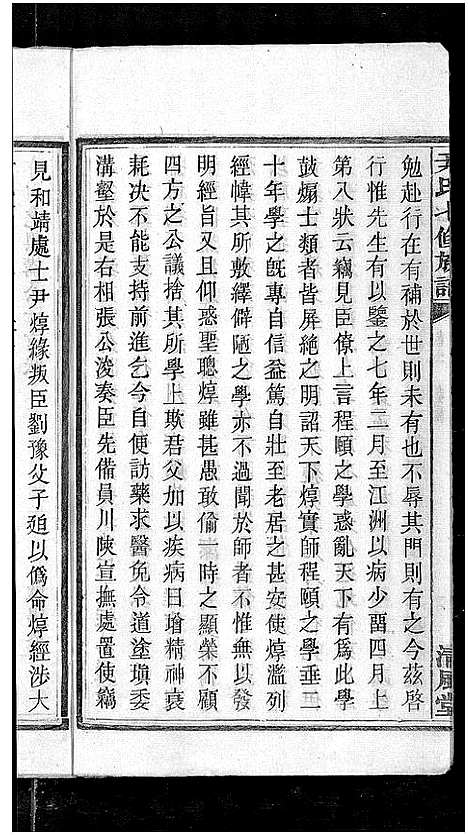 尹氏七修族譜
清風堂
勉赴行在有補於世則未有也不辱其門則有之今茲啓
行惟先生有以鑒之七年二月至江洲以病少畱四月上
第八狀云竊見臣僚上言程頤之學惑亂天下有爲此學
鼓煽士類者皆屏絶之明詔天下焞實師程頤之學垂二
十年學之旣專自信益篤自壯至老居之甚安使焞濫列
經幃其所敷繹僻陋之學亦不過聞於師者不惟無以發
明經旨又且仰惑聖聰焞雖甚愚敢偷一時之顯榮不顧
四方之公議捨其所學上欺君父加以疾病日增精神衰
耗決不能支持前進乞今自便訪藥求醫免令道塗瑱委
溝壑於是右相張公浚奏臣先備員川陝宣撫處置使竊
見和靖處士尹焞緣叛臣劉豫父子廹以僞命焞經涉大